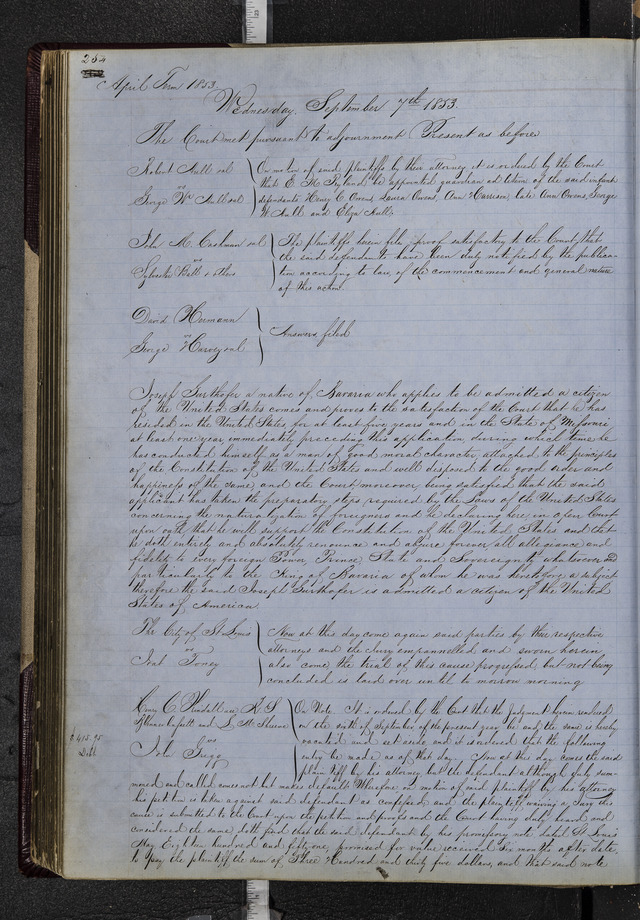 284
April Term 1853
Wednesday September 7th 1853
The Court met pursuant to adjournment Present as before
Robert Aull et al
vs
George W Aull et al
On motion of said plaintiffs by their attorney it is ordered by the Court
that E. H. be appointed guardian ad litem of the said infant
defendants Henry C Owens, Laura Owens, Ann Harrison, late Ann Owens, George
W Aull and Eliza Aull.
John M. et al
vs
Sylvester & others
The plaintiffs herein file proof satisfactory to the Court that
the said defendants have been duly notified by the publica-
tion according to law of the commencement and general nature
of this action.
David Hermann
vs
George Harvey et al
Answers filed
Joseph Gurthofer a native of Bavaria who applies to be admitted a citizen
of the United States comes and proves to the satisfaction of the Court that he has
resided in the United States for at least five years and in the State of Missouri
at least one year immediately preceding this application, during which time he
has conducted himself as a man of good moral character, attached to the principles
of the Constitution of the United States and well disposed to the good order and
happiness of the same, and the Court moreover being satisfied that the said
applicant has taken the preparatory steps required by the Laws of the United States
concerning the naturalization of foreigners and he declaring here in open Court
upon oath that he will support the Constitution of the United States and that
he doth entirely and absolutely renounce and abjure forever all allegiance and
fidelity to every foreign Power Prince, State and Sovereignty whatsoever and
particularly to the King of Bavaria of whom he was heretofore a subject
therefore the said Joseph Gurthofer is admitted a citizen of the United
States of America.
The City of St Louis
vs
Toney
Now at this day come again said parties by their respective
attorneys and the Jury empannelled and sworn herein
also come, the trial of this cause progressed, but not being
concluded is laid over until to morrow morning
$415.95
Debt
vs
John
On Note. It is ordered by the Court that the Judgment herein rendered
on the sixth of September of the present year be and the same is hereby
vacated and set aside, and it is ordered that the following
entry be made as of that day. Now at this day comes the said
plaintiff by his attorney but the defendant although duly sum-
moned and called comes not but makes default. Wherefore on motion of said plaintiff by his attorney
his petition is taken against said defendant as confessed and the plaintiff waiving a Jury this
cause is submitted to the Court upon the petition and proofs and the Court having duly heard and
considered the same, doth find that the said defendant by his promissory note dated St Louis
May Eighteen hundred and fifty one, promised for value received Six months after date
to pay the plaintiff the sum of Three Hundred and thirty five dollars, and that said note